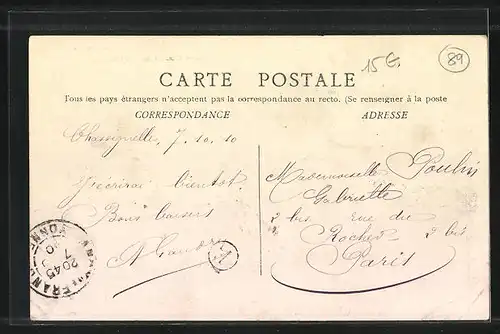 15 G.
89
CARTE POSTALE
Tous les pays étrangers n'acceptent pas la correspondance au recto. (Se renseigner à la poste
CORRESPONDANCE
ADRESSE
Chassignelle, 7.10.10
J'écrirai bientôt.
Bons baisers
Mademoiselle Poulin
Gabrielle
2 bis rue du
Rocher 2 bis
Paris
YONNE
20 45
7